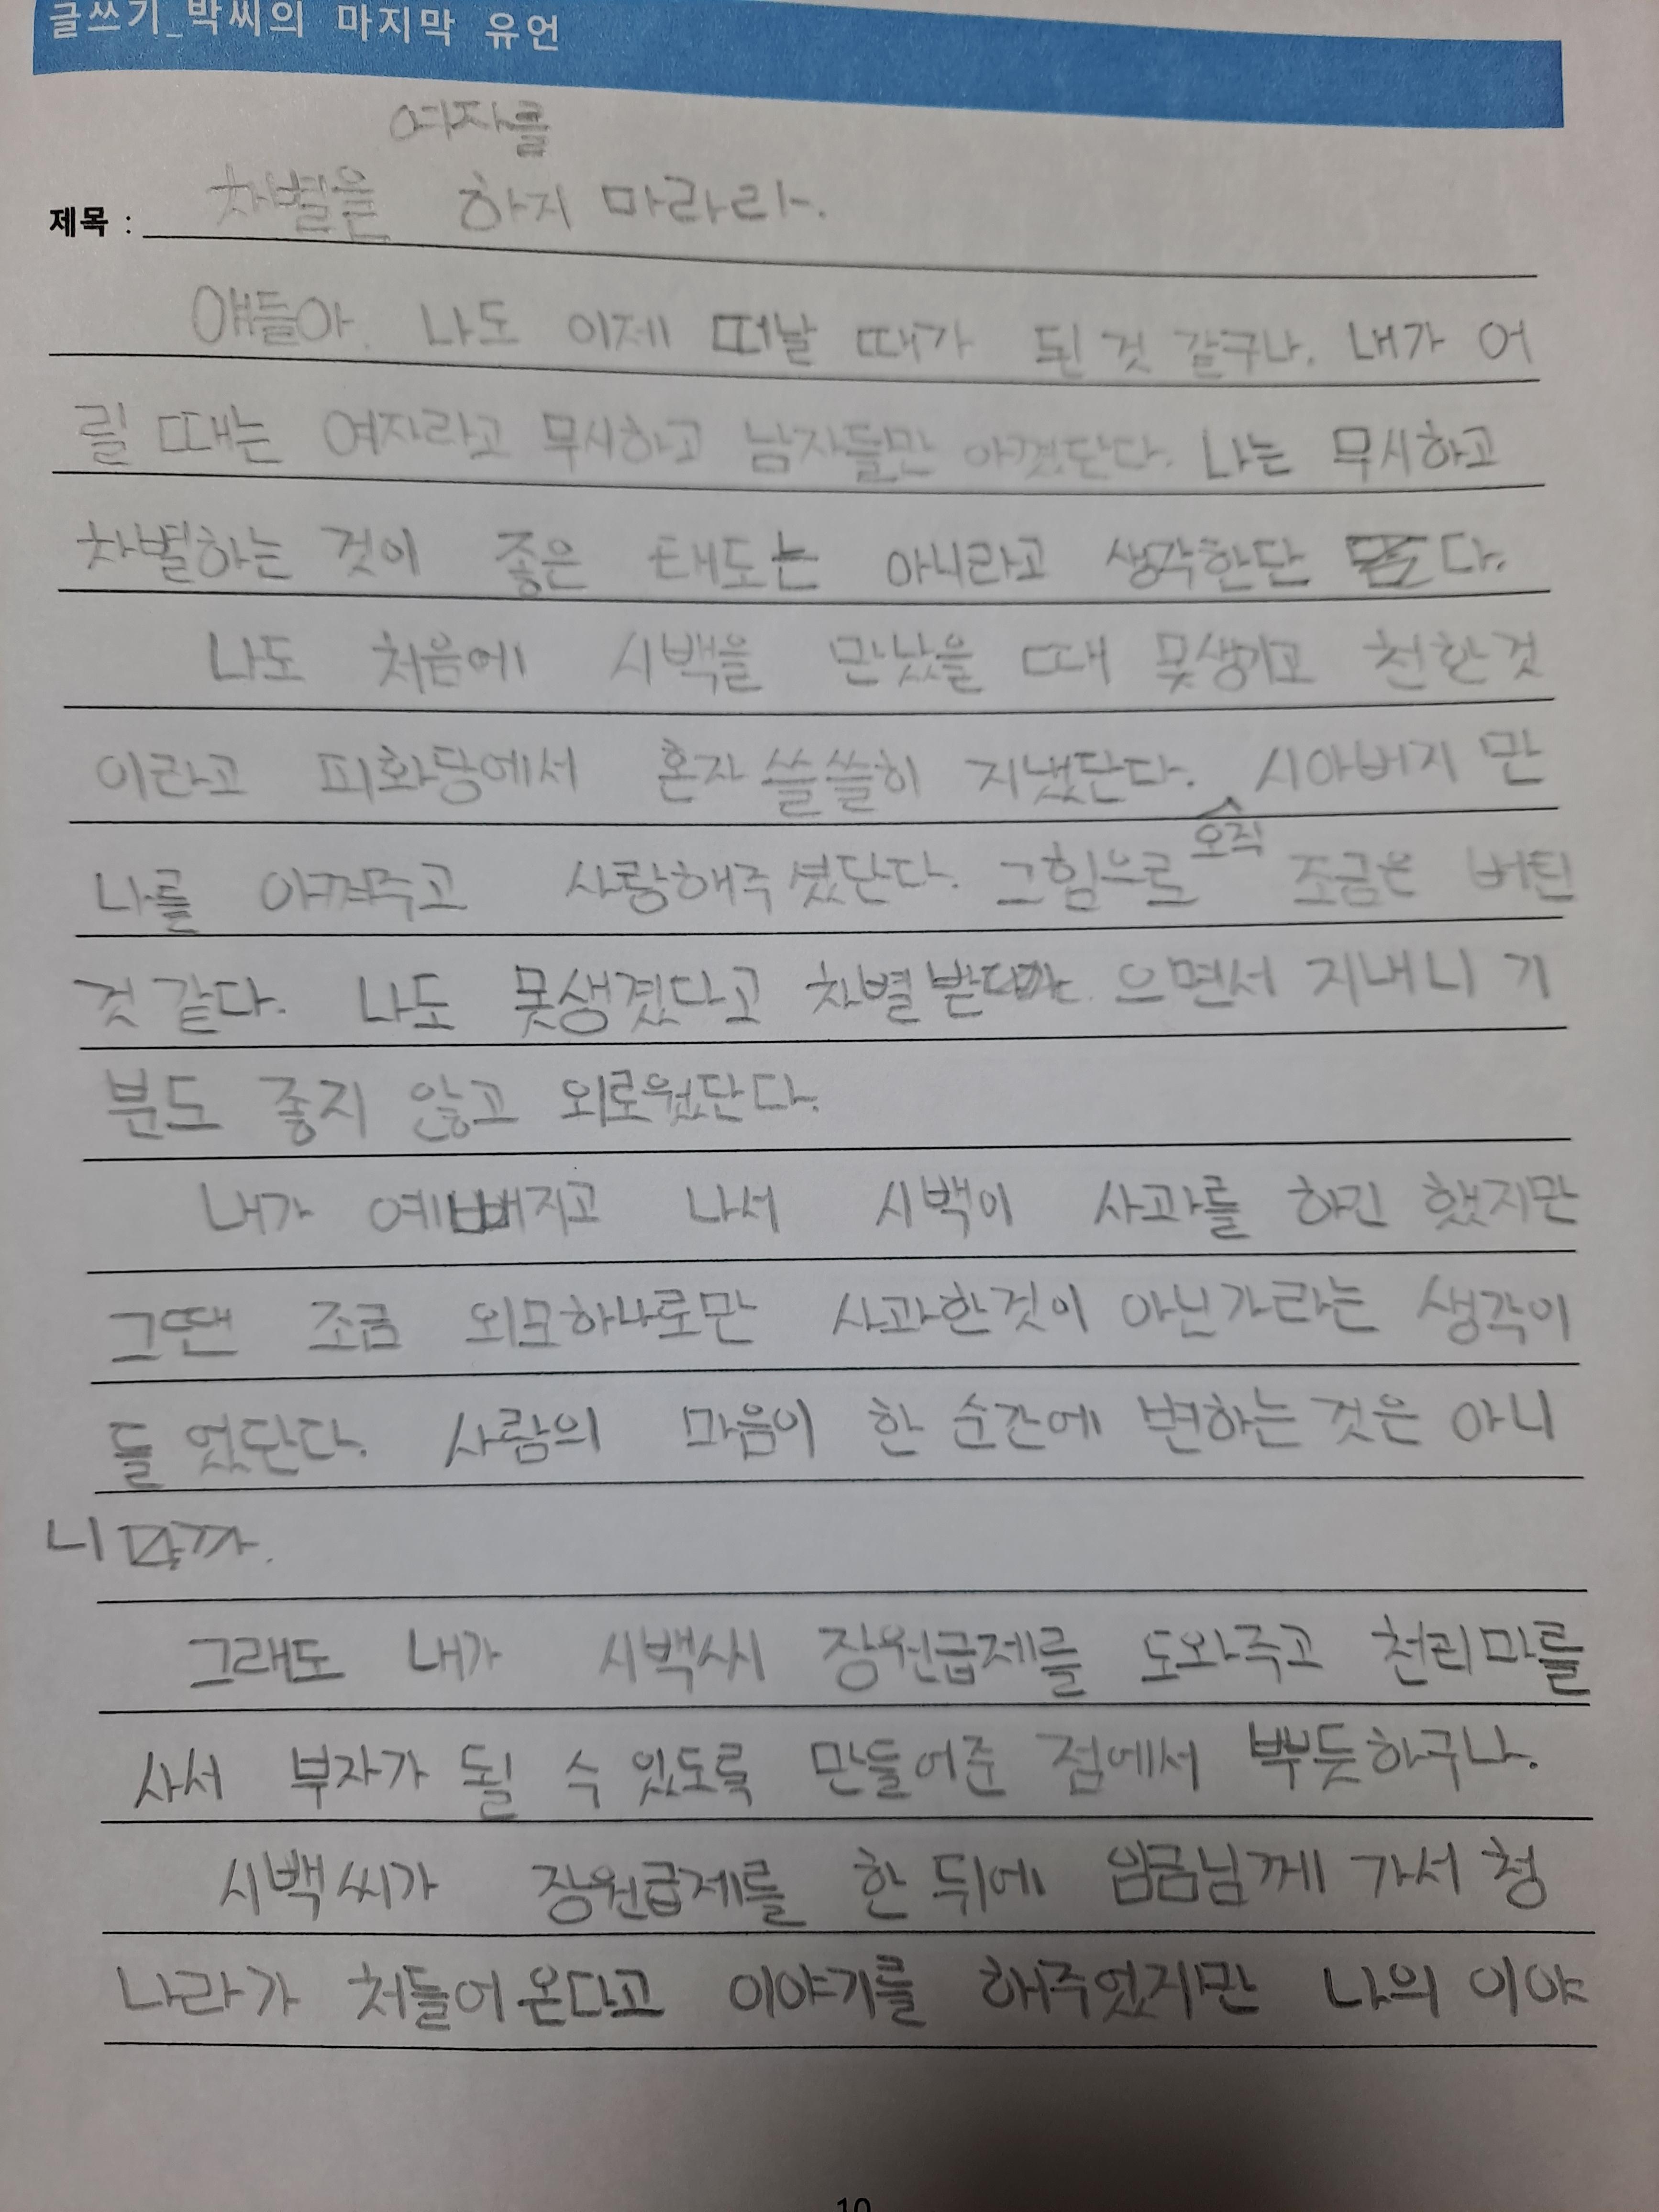 글쓰기_박씨의 마지막 유언
여자를
제목 : 차별을 하지 마라라.
얘들아. 나도 이제 떠날 때가 된 것 같구나. 내가 어
릴 때는 여자라고 무시하고 남자들만 아꼈단다. 나는 무시하고
차별하는 것이 좋은 태도는 아니라고 생각한단 다.
나도 처음에 시백을 만났을 때 못생기고 천한것
이라고 피화당에서 혼자 쓸쓸히 지냈단다. 시아버지 만
오직
나를 아껴주고 사랑해주셨단다. 그힘으로 조금은 버틴
것 같다. 나도 못생겼다고 차별 받 으면서 지내니 기
분도 좋지 않고 외로웠단다.
내가 예뻐지고 나서 시백이 사과를 하긴 했지만
그땐 조금 외모하나로만 사과한것이 아닌가라는 생각이
들었단다. 사람의 마음이 한 순간에 변하는 것은 아니
니까.
그래도 내가 시백씨 장원급제를 도와주고 천리마를
사서 부자가 될 수 있도록 만들어준 점에서 뿌듯하구나.
시백씨가 장원급제를 한 뒤에 임금님께 가서 청
나라가 처들어온다고 이야기를 해주었지만 나의 이야
10